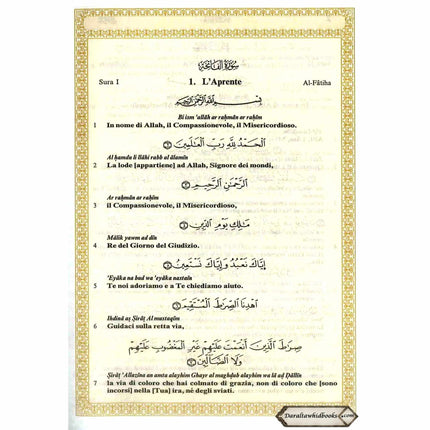 سُورَةُ الْفَاتِحَة
Sura I 1. L'Aprente Al-Fâtiha
بِسْمِ اللهِ الرَّحْمٰنِ الرَّحِيمِ
Bi ism 'allâh ar rahmân ar rahîm
1 In nome di Allah, il Compassionevole, il Misericordioso.
الْحَمْدُ لِلَّهِ رَبِّ الْعَالَمِينَ
Al hamdu li llâhi rabb al âlamîn
2 La lode [appartiene] ad Allah, Signore dei mondi,
الرَّحْمَٰنِ الرَّحِيمِ
Ar rahmân ar rahîm
3 il Compassionevole, il Misericordioso,
مَالِكِ يَوْمِ الدِّينِ
Mâlik yawm ad dîn
4 Re del Giorno del Giudizio.
إِيَّاكَ نَعْبُدُ وَإِيَّاكَ نَسْتَعِينُ
'Eyâka na bud wa 'eyâka nastaîn
5 Te noi adoriamo e a Te chiediamo aiuto.
اهْدِنَا الصِّرَاطَ الْمُسْتَقِيمَ
Ihdinâ aş Şirâţ Al mustaqîm
6 Guidaci sulla retta via,
صِرَاطَ الَّذِينَ أَنْعَمْتَ عَلَيْهِمْ غَيْرِ الْمَغْضُوبِ عَلَيْهِمْ
وَلَا الضَّالِّينَ
Şirâţ 'Allazîna an amta alayhim Ghayr al maghdab alayhim wa lâ aḍ Ḍâllîn
7 la via di coloro che hai colmato di grazia, non di coloro che [sono
incorsi] nella [Tua] ira, né degli sviati.
Daraltawhidbooks.com